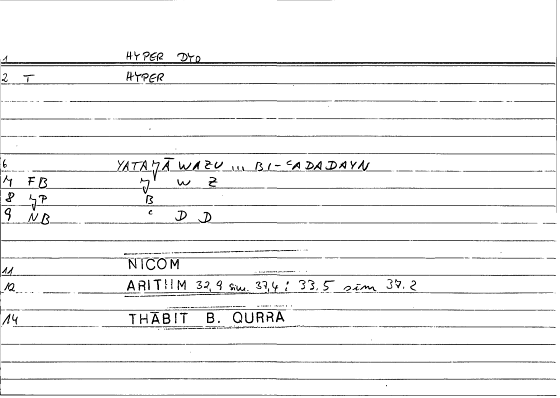 1 HYPER DYO
2 T HYPER
6 WAZU ... BI-ᶜADADAYN
7 FB W Z
8 B
9 NB ᶜ D D
11 NICOM
12 ARITHM 32,9 sim. 37,4; 33.5 sim 37.2
14 THĀBIT B. QURRA